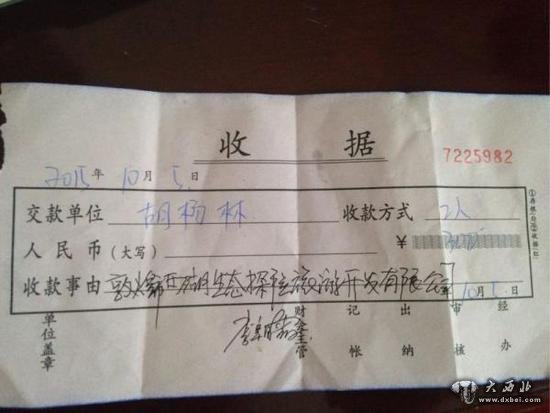 收 据
7225982
2015年 10月 5日
交款单位 胡杨林 收款方式 2人
人民币(大写) ¥
收款事由 敦煌市西湖生态探险旅游开发有限公司
10月5日
单位盖章 财会主管 记帐 出纳 审核 经办
大西北
www.dxbei.com